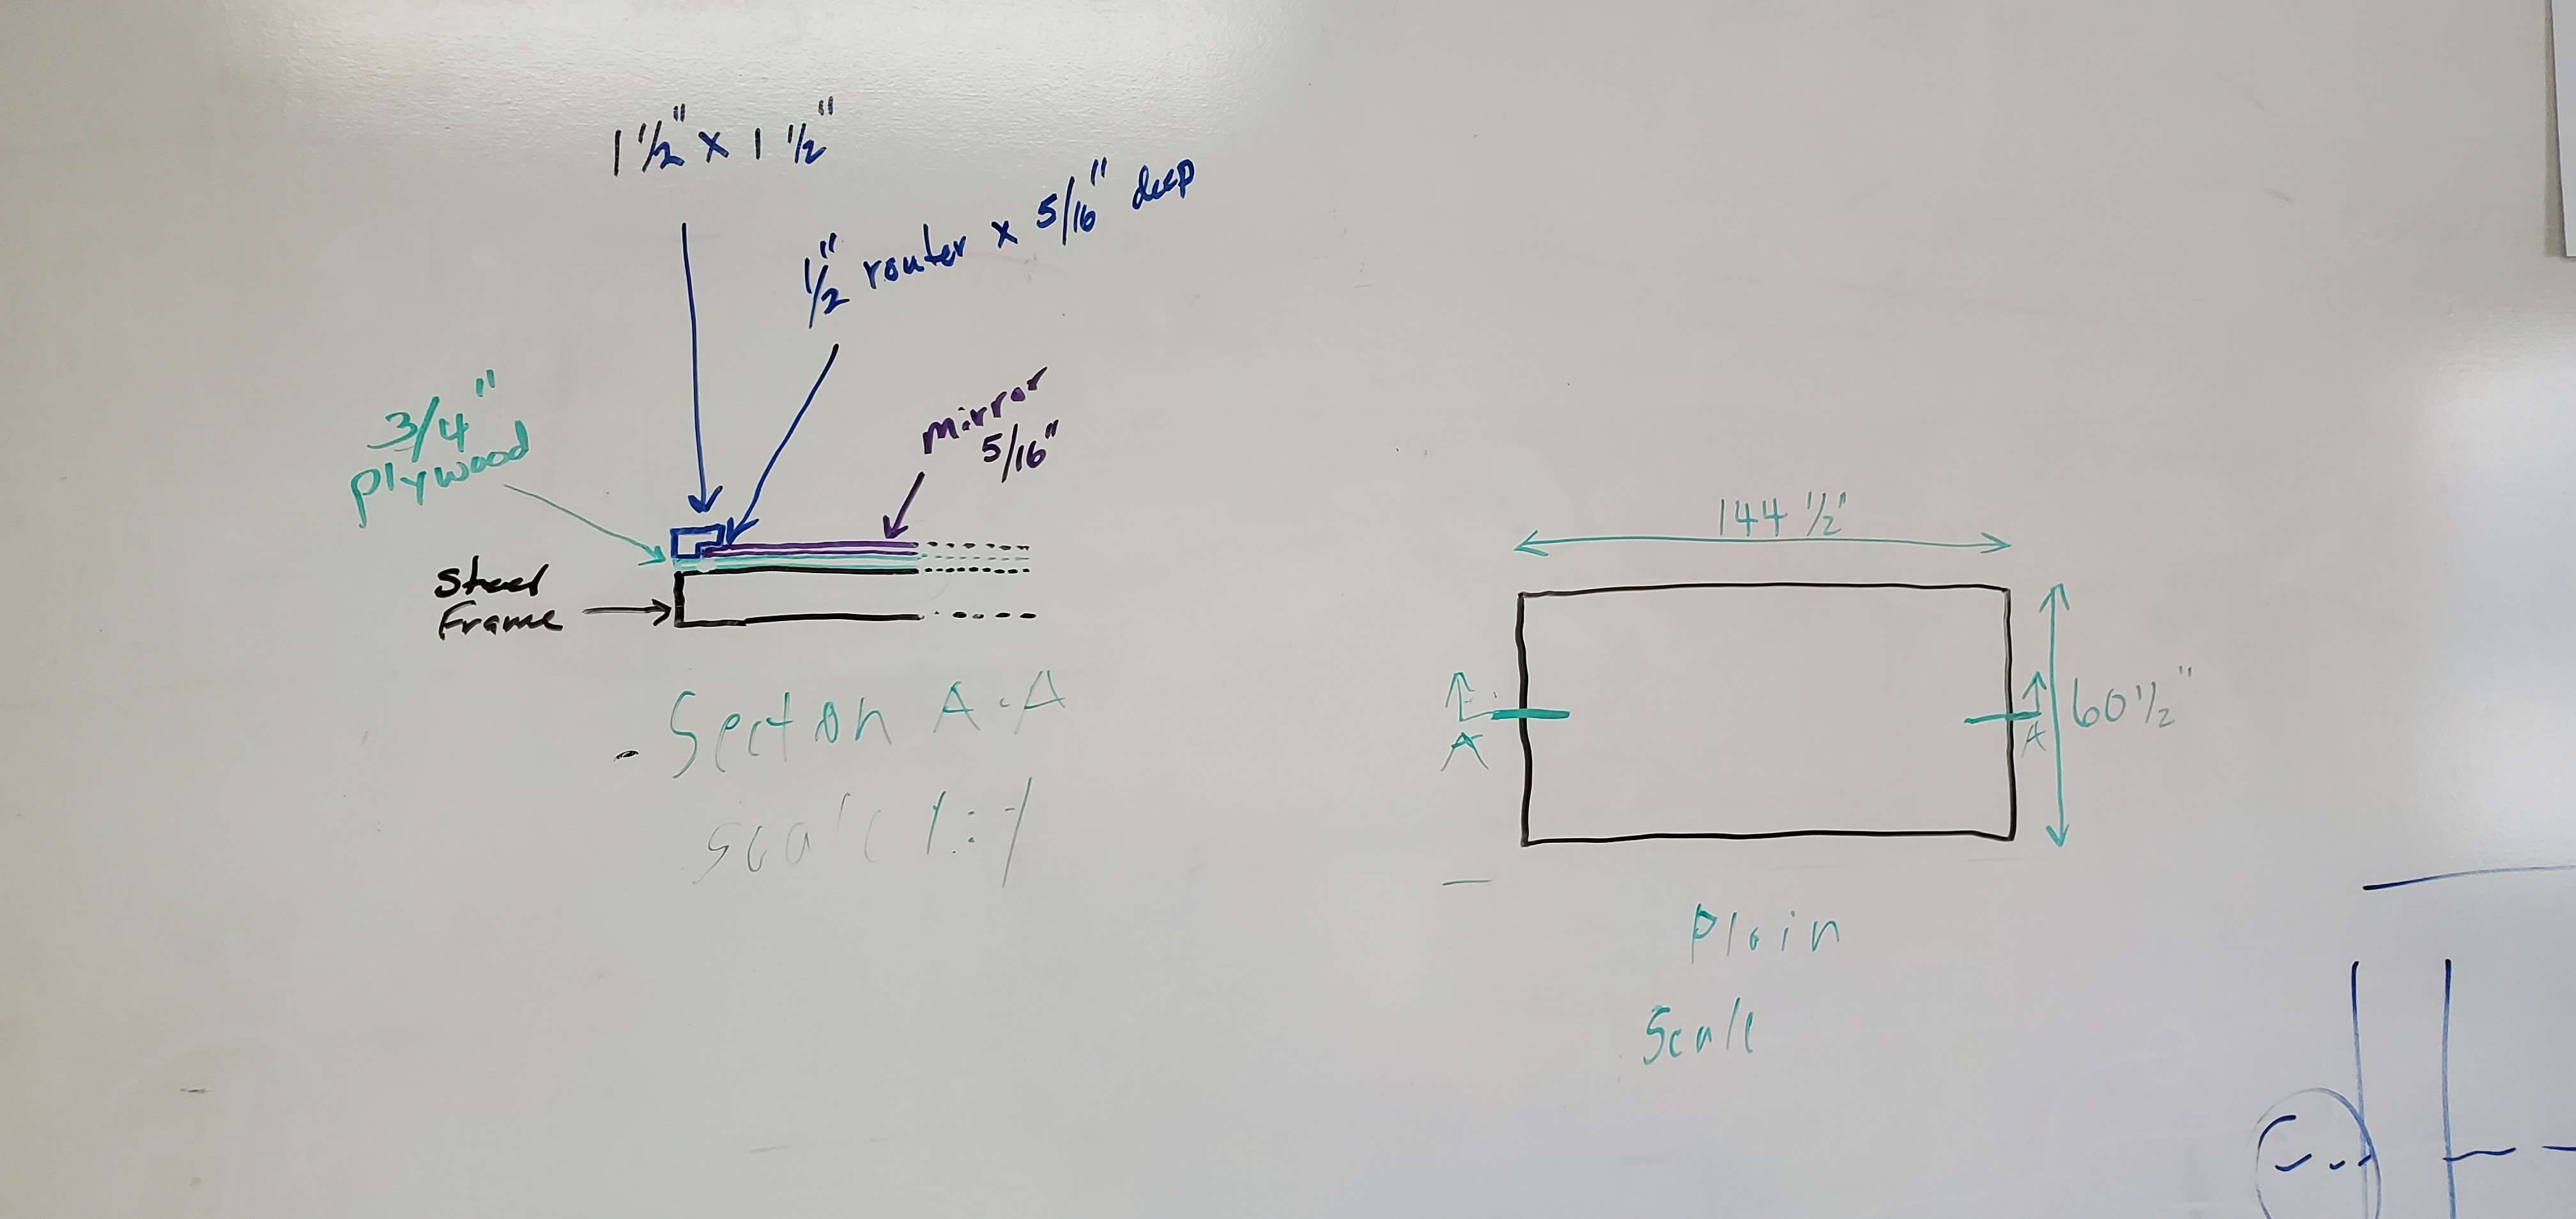 1 1/2" x 1 1/2"
1/2" router x 5/16" deep
3/4"
plywood
mirror
5/16"
Steel
Frame
Section A-A
scale 1:1
144 1/2"
60 1/2"
A
A
Plain
Scale